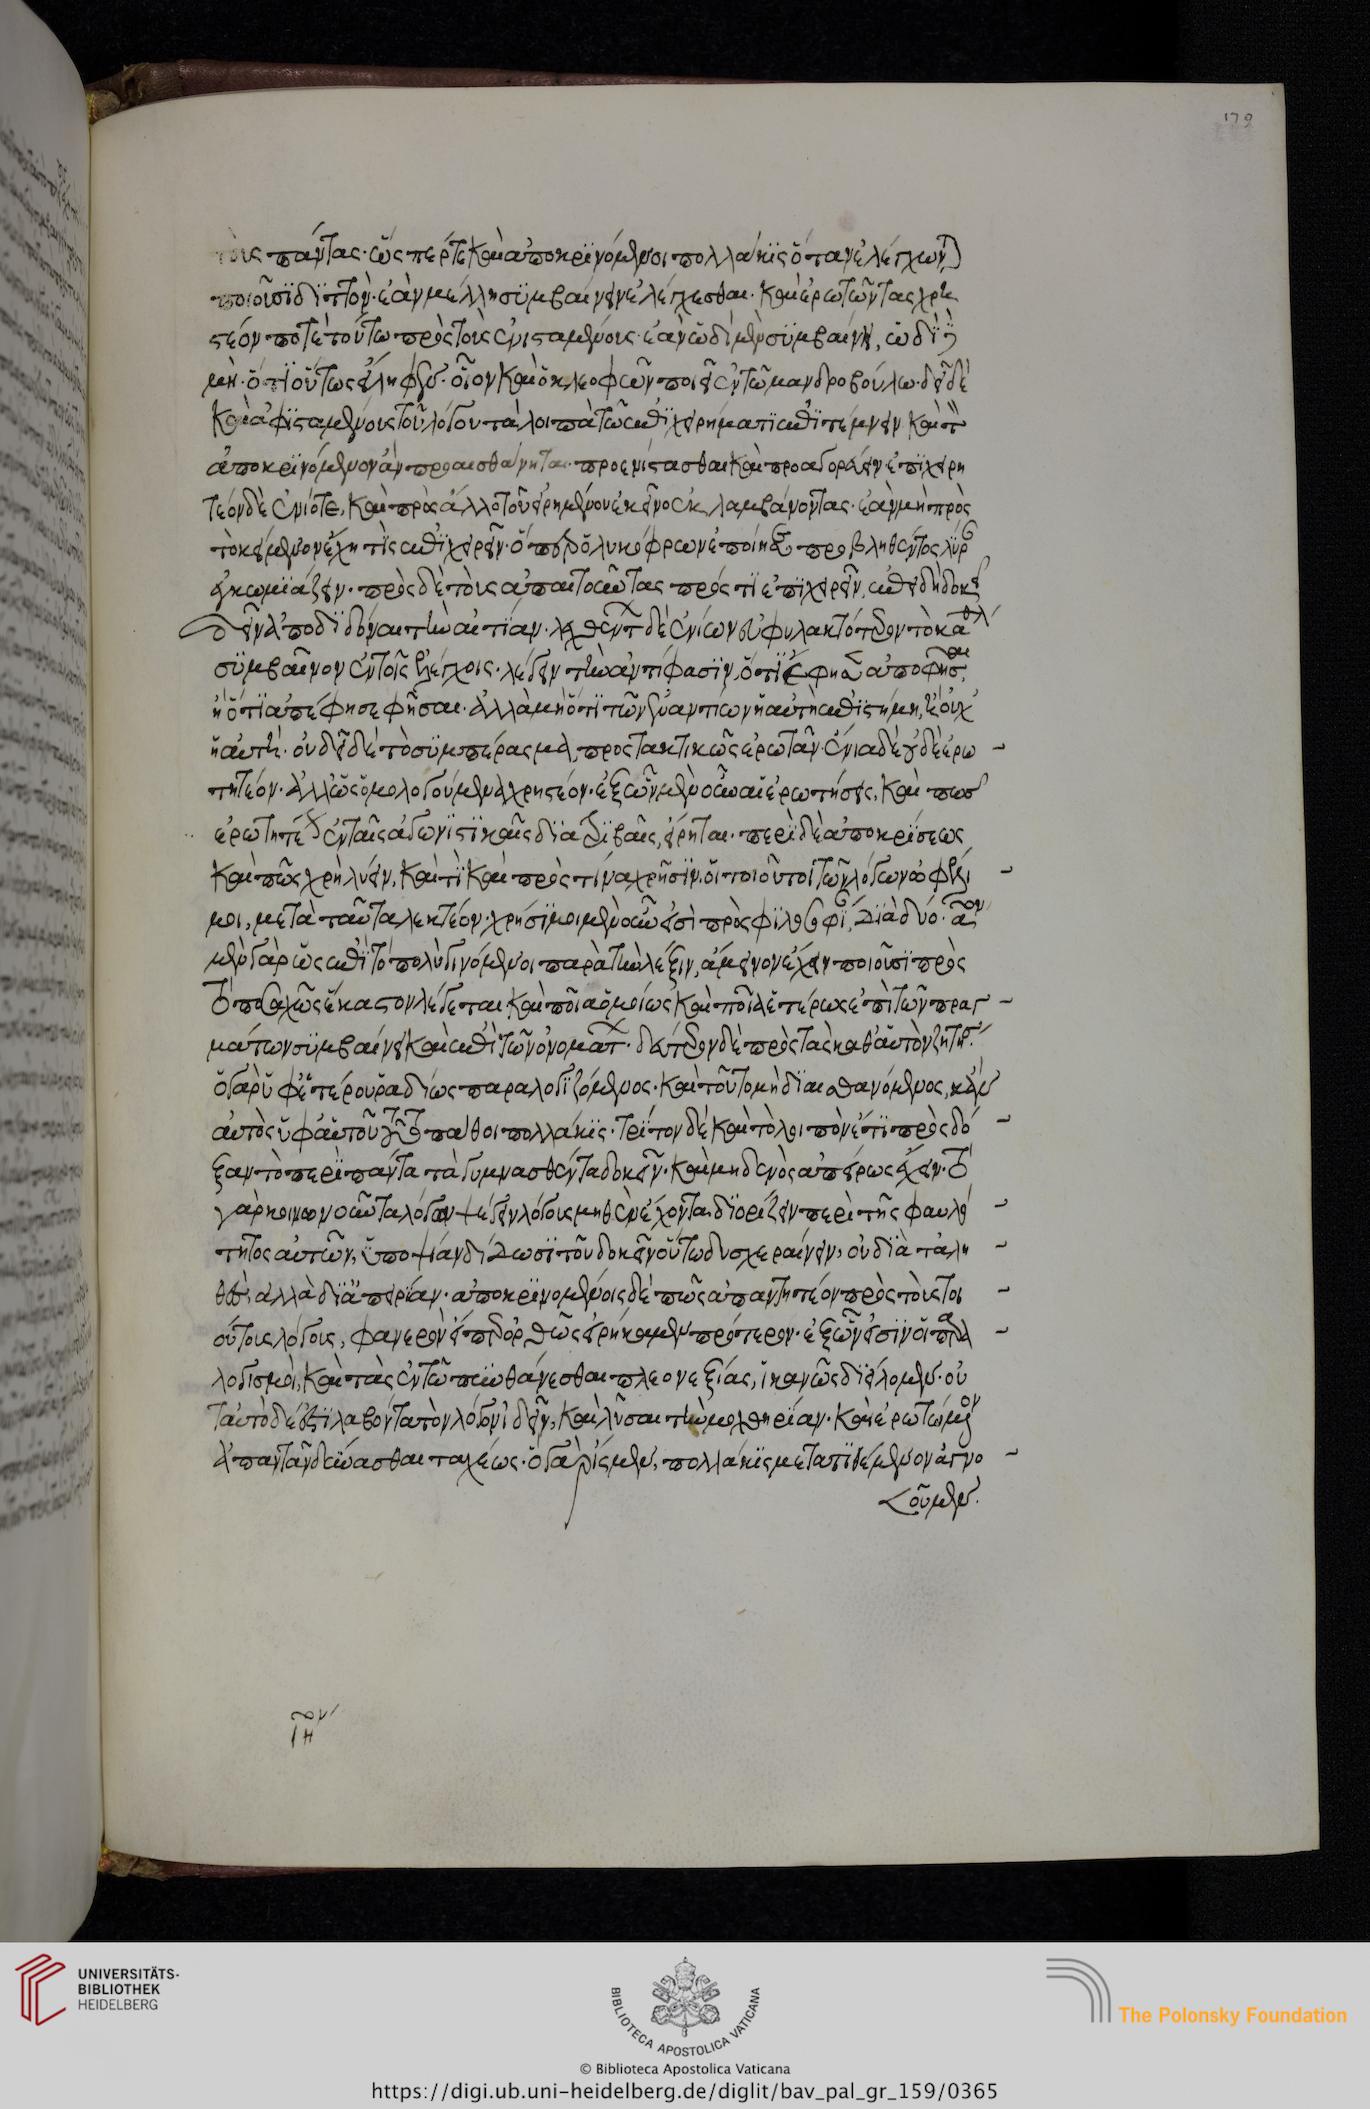 179
τοῖς πάντας· ὥσπερ τε καὶ ἀποκρινόμενοι πολλάκις ὅταν ἐλέγχωνται
ποιοῦσι διττόν· ἐὰν μέλλη συμβαίνειν ἐλέγχεσθαι. καὶ ἐρωτῶντας χρη
στέον ποτὲ τούτω πρὸς τοὺς ἐνισταμένους· ἐὰν ὡδὶ μὲν συμβαίνη, ὡδὶ δὲ
μή· ὅτι οὕτως εἴληφεν· οἷον καὶ ὁ κλεοφῶν ποιεῖ ἐν τῶ μανδροβούλω· δεῖ δὲ
καὶ ἀφισταμένους τοῦ λόγου τὰ λοιπὰ τῶν ἐπιχειρημάτων ἐπιτέμνειν καὶ τὸν
ἀποκρινόμενον ἂν προαισθάνηται προενίστασθαι καὶ προαγορεύειν· ἐπιχειρη
τέον δὲ ἐνίοτε, καὶ πρὸς ἄλλο τοῦ εἰρημένου ἐκεῖνο ἐκλαμβάνοντας· ἐὰν μὴ πρὸς
τὸ κείμενον ἔχη τὶς ἐπιχειρεῖν· ὅπερ ὁ λυκόφρων ἐποίησε προβληθέντος λύραν
ἐγκωμιάζειν· πρὸς δὲ τοὺς ἀπαιτοῦντας πρός τι ἐπιχειρεῖν, ἐπειδὴ δοκεῖ
δεῖν ἀποδιδόναι τὴν αἰτίαν· λεχθέντων δὲ ἐνίων εὐφυλακτότερον τὸ καθόλου
συμβαῖνον ἐν τοῖς ἐλέγχοις· λέγειν τὴν ἀντίφασιν, ὅτι ἔφησεν ἀποφῆσαι
ἢ ὅτι ἀπέφησε φῆσαι. ἀλλὰ μὴ ὅτι τῶν ἐναντίων ἡ αὐτὴ ἐπιστήμη, ἢ οὐχ
ἡ αὐτή· οὐ δεῖ δὲ τὸ συμπέρασμα προτακτικῶς ἐρωτᾶν· ἔνια δὲ οὐδὲ ἐρω
τητέον· ἀλλ' ὡς ὁμολογουμένω χρηστέον· ἐξ ὧν μὲν οὖν αἱ ἐρωτήσεις, καὶ πῶς
ἐρωτητέον ἐν ταῖς ἀγωνιστικαῖς διατριβαῖς, εἴρηται· περὶ δὲ ἀποκρίσεως
καὶ πῶς χρὴ λύειν, καὶ τί καὶ πρὸς τίνα χρῆσιν, οἱ τοιοῦτοι τῶν λόγων ὠφέλι
μοι, μετὰ ταῦτα λεκτέον· χρήσιμοι μὲν οὖν εἰσὶ πρὸς φιλοσοφίαν, διὰ δύο· πρῶτον
μὲν γὰρ ὡς ἐπὶ τὸ πολὺ γινόμενοι παρὰ τὴν λέξιν, ἄμεινον ἔχειν ποιοῦσι πρὸς
τὸ ποσαχῶς ἕκαστον λέγεται καὶ ποῖα ὁμοίως καὶ ποῖα ἑτέρως ἐπὶ τῶν πραγ
μάτων συμβαίνει καὶ ἐπὶ τῶν ὀνομάτων· δεύτερον δὲ πρὸς τὰς καθ' αὑτὸν ζητήσεις
ὁ γὰρ ὑφ' ἑτέρου ῥαδίως παραλογιζόμενος· καὶ τοῦτο μὴ διαισθανόμενος, κἂν
αὐτὸς ὑφ' αὑτοῦ τοῦτο πάθοι πολλάκις· τρίτον δὲ καὶ τὸ λοιπὸν ἔτι πρὸς δό
ξαν τὸ περὶ πάντα τὰ γυμνασθέντα δοκεῖν· καὶ μηδενὸς ἀπείρως ἔχειν· τὸ
γὰρ κοινωνοῦντα λόγων ψέγειν λόγους μηθὲν ἔχοντα διορίζειν περὶ τῆς φαυλό
τητος αὐτῶν, ὑποψίαν δίδωσι τοῦ δοκεῖν οὕτω δυσχεραίνειν, οὐ διὰ τἀλη
θές, ἀλλὰ δι' ἀπειρίαν· ἀποκρινομένοις δὲ πῶς ἀπαντητέον πρὸς τοὺς τοι
ούτους λόγους, φανερὸν εἴπερ ὀρθῶς εἰρήκαμεν πρότερον· ἐξ ὧν εἰσὶν οἱ παρα
λογισμοί, καὶ τὰς ἐν τῶ πυνθάνεσθαι πλεονεξίας, ἱκανῶς διείλομεν· οὐ
ταὐτὸ δέ ἐστι λαβόντα τὸν λόγον ἰδεῖν, καὶ λῦσαι τὴν μοχθηρίαν· καὶ ἐρωτώμενον
ἀπαντᾶν δύνασθαι ταχέως· ὃ γὰρ ἴσμεν, πολλάκις μετατιθέμενον ἀγνο
οῦμεν.
ιη
UNIVERSITÄTS-
BIBLIOTHEK
HEIDELBERG
BIBLIOTECA APOSTOLICA VATICANA
The Polonsky Foundation
© Biblioteca Apostolica Vaticana
https://digi.ub.uni-heidelberg.de/diglit/bav_pal_gr_159/0365